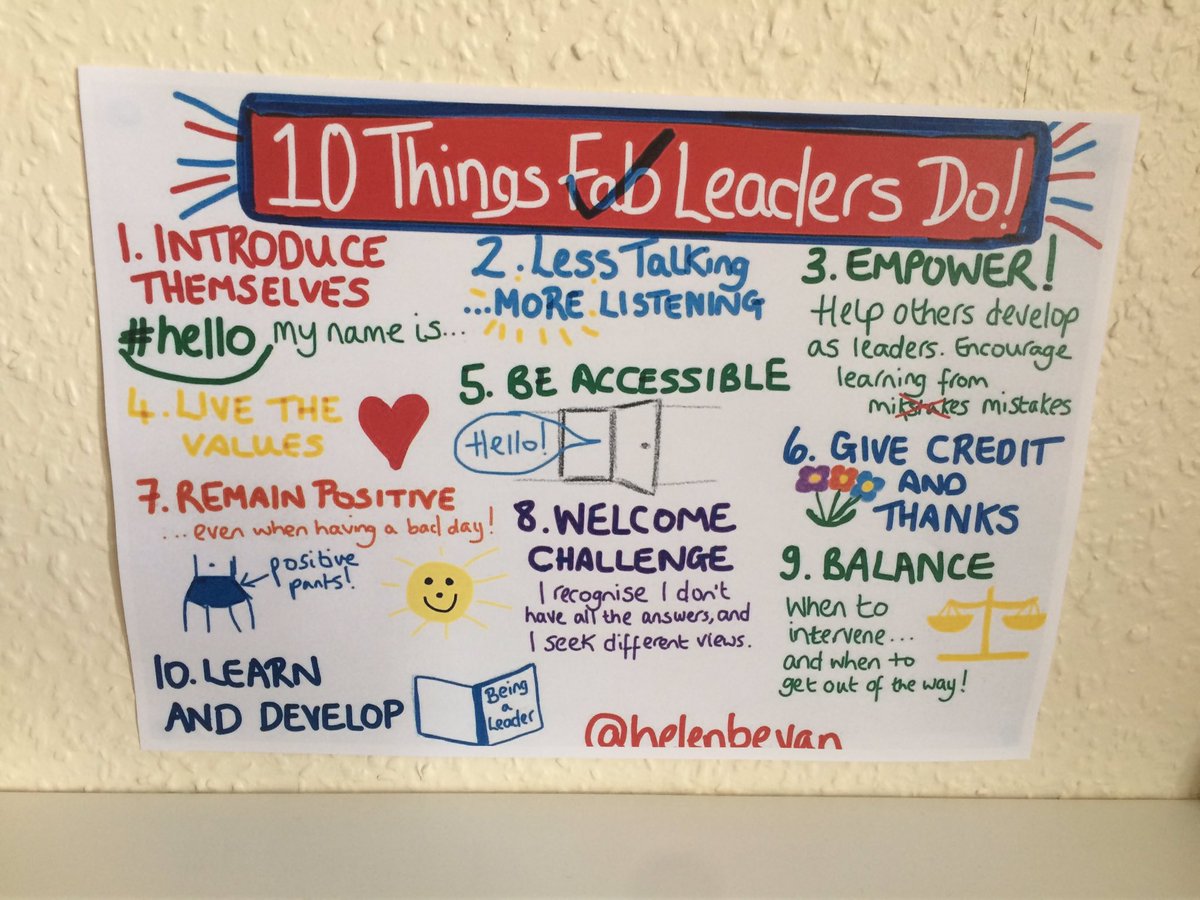 10 Things Fab Leaders Do!
1. INTRODUCE
THEMSELVES
#hello my name is...
2. Less Talking
...MORE LISTENING
3. EMPOWER!
Help others develop
as leaders. Encourage
learning from
mistakes
4. LIVE THE
VALUES
5. BE ACCESSIBLE
Hello!
6. GIVE CREDIT
AND
THANKS
7. REMAIN POSITIVE
...even when having a bad day!
positive
pants!
8. WELCOME
CHALLENGE
I recognise I don't
have all the answers, and
I seek different views.
9. BALANCE
When to
intervene...
and when to
get out of the way!
10. LEARN
AND DEVELOP
Being
a
Leader
@helenbevan